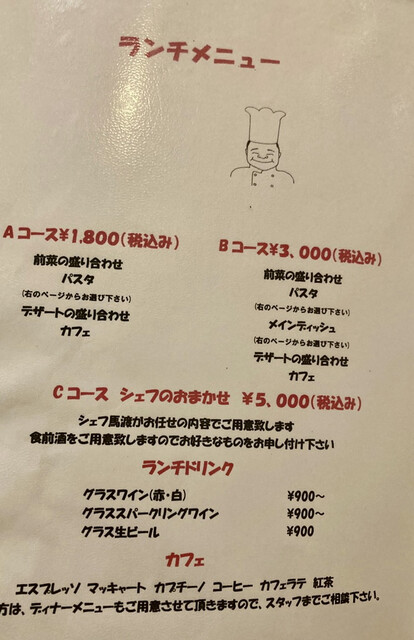 ランチメニュー
Aコース¥1,800(税込み)
前菜の盛り合わせ
パスタ
(右のページからお選び下さい)
デザートの盛り合わせ
カフェ
Bコース¥3、000(税込み)
前菜の盛り合わせ
パスタ
(右のページからお選び下さい)
メインディッシュ
(右のページからお選び下さい)
デザートの盛り合わせ
カフェ
Cコース シェフのおまかせ ¥5、000(税込み)
シェフ馬渡がお任せの内容でご用意致します
食前酒をご用意致しますのでお好きなものをお申し付け下さい
ランチドリンク
グラスワイン(赤・白) ¥900~
グラススパークリングワイン ¥900~
グラス生ビール ¥900
カフェ
エスプレッソ マッキャート カプチーノ コーヒー カフェラテ 紅茶
方は、ディナーメニューもご用意させて頂きますので、スタッフまでご相談下さい。